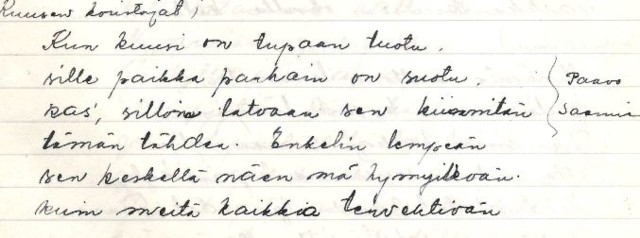 Kuusen koristajat;
Kun kuusi on tupaan tuotu,
sille paikka parhain on suotu,
kas, silloin latvaan sen kiinnitän
tämän tähden. Enkelin lempeän
sen keskellä näen mä hymyilevän.
kuin meitä kaikkia tervehtivän
Paavo
Saamia